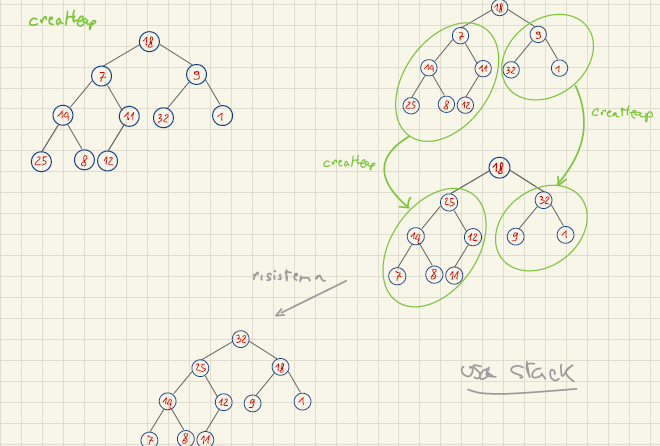 creatHeap
18
7 9
14 11 32 1
25 8 12
18
7 9
14 11 32 1
25 8 12
creatHeap
creatHeap
18
25 32
14 12 9 1
7 8 11
risistema
32
25 18
14 12 9 1
7 8 11
usa stack